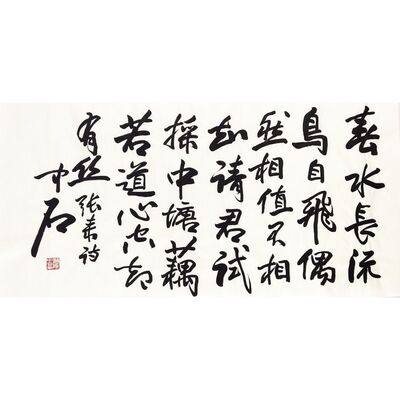 春水長流
鳥自飛偶
然相值不相
知請君試
採中塘藕
若道心空却
有丝 張莱诗
中石